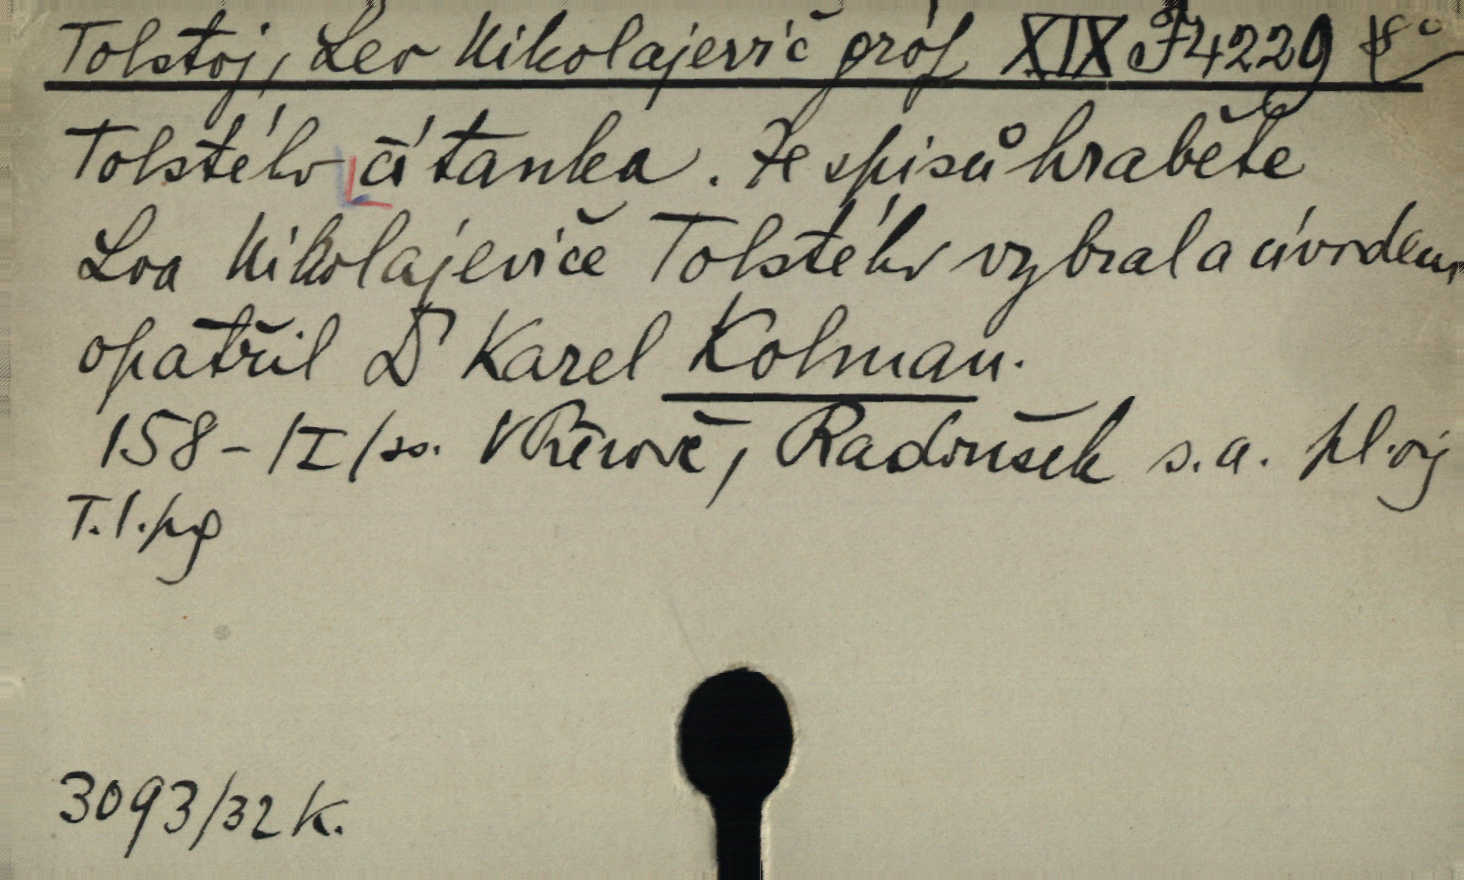 Tolstoj, Lev Nikolajevič gróf XIX F4229 8°
Tolstého čítanka. Ze spisů hraběte
Lva Nikolajeviče Tolstého vybral a úvodem
opatřil Dr Karel Kolman.
158-/I/ss. V Brně, Radoušek s.a. pl.
T.l.pg
3093/32 K.